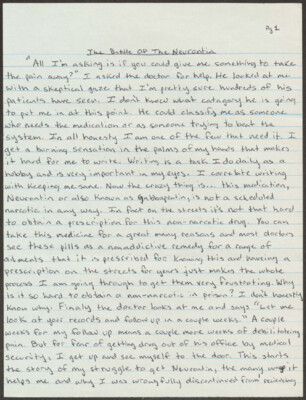 Pg 1
The Battle Of The Neurontin
"All I'm asking is if you could give me something to take
the pain away?" I asked the doctor for help. He looked at me
with a skeptical gaze that I'm pretty sure hundreds of his
patients have seen. I don't know what catagory he is going
to put me in at this point. He could classify me as someone
who needs the medication or as someone trying to beat the
system. In all honesty I am one of the few that need it. I
get a burning sensation in the palms of my hands that makes
it hard for me to write. Writing is a task I do daily as a
hobby and is very important in my eyes. I correlate writing
with keeping me sane. Now the crazy thing is... this medication,
Neurontin or also known as Gabapentin, is not a scheduled
narcotic in any way. In fact on the streets it's not that hard
to obtain a prescription for this non-narcotic drug. You can
take this medicine for a great many reasons and most doctors
see these pills as a nonaddictive remedy for a range of
ailments that it is prescribed for. Knowing this and having a
prescription on the streets for years just makes the whole
process I am going through to get them very frustrating. Why
is it so hard to obtain a non-narcotic in prison? I don't honestly
know why. Finally the doctor looks at me and says "Let me
look at your records and follow up in a couple weeks." A couple
weeks for my follow up means a couple more weeks of debilitating
pain. But for fear of getting drug out of his office by medical
security, I get up and see myself to the door. This starts
the story of my struggle to get Neurontin, the many ways it
helps me and why I was wrongfully discontinued from receiving